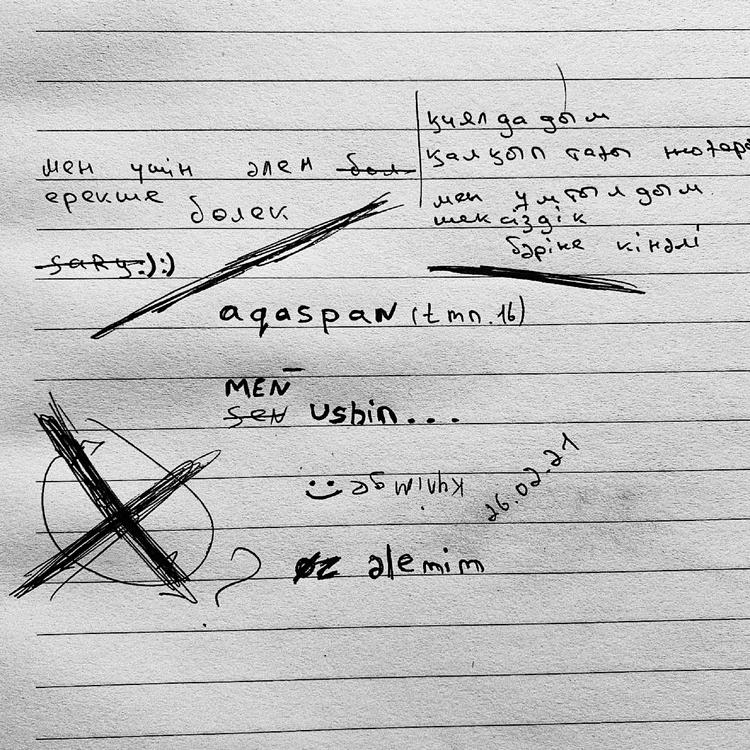 мен үшін әлем бөл
ерекше
бөлек
sary:):)
қиялдадым
қалқып тағы жоғары
мен ұмтылдым
шексіздік
бәріне кінәлі
aqaspan (tmn.16)
MEN
SEN Ushin...
күнімде :)
26.02.21
? øz әlemim